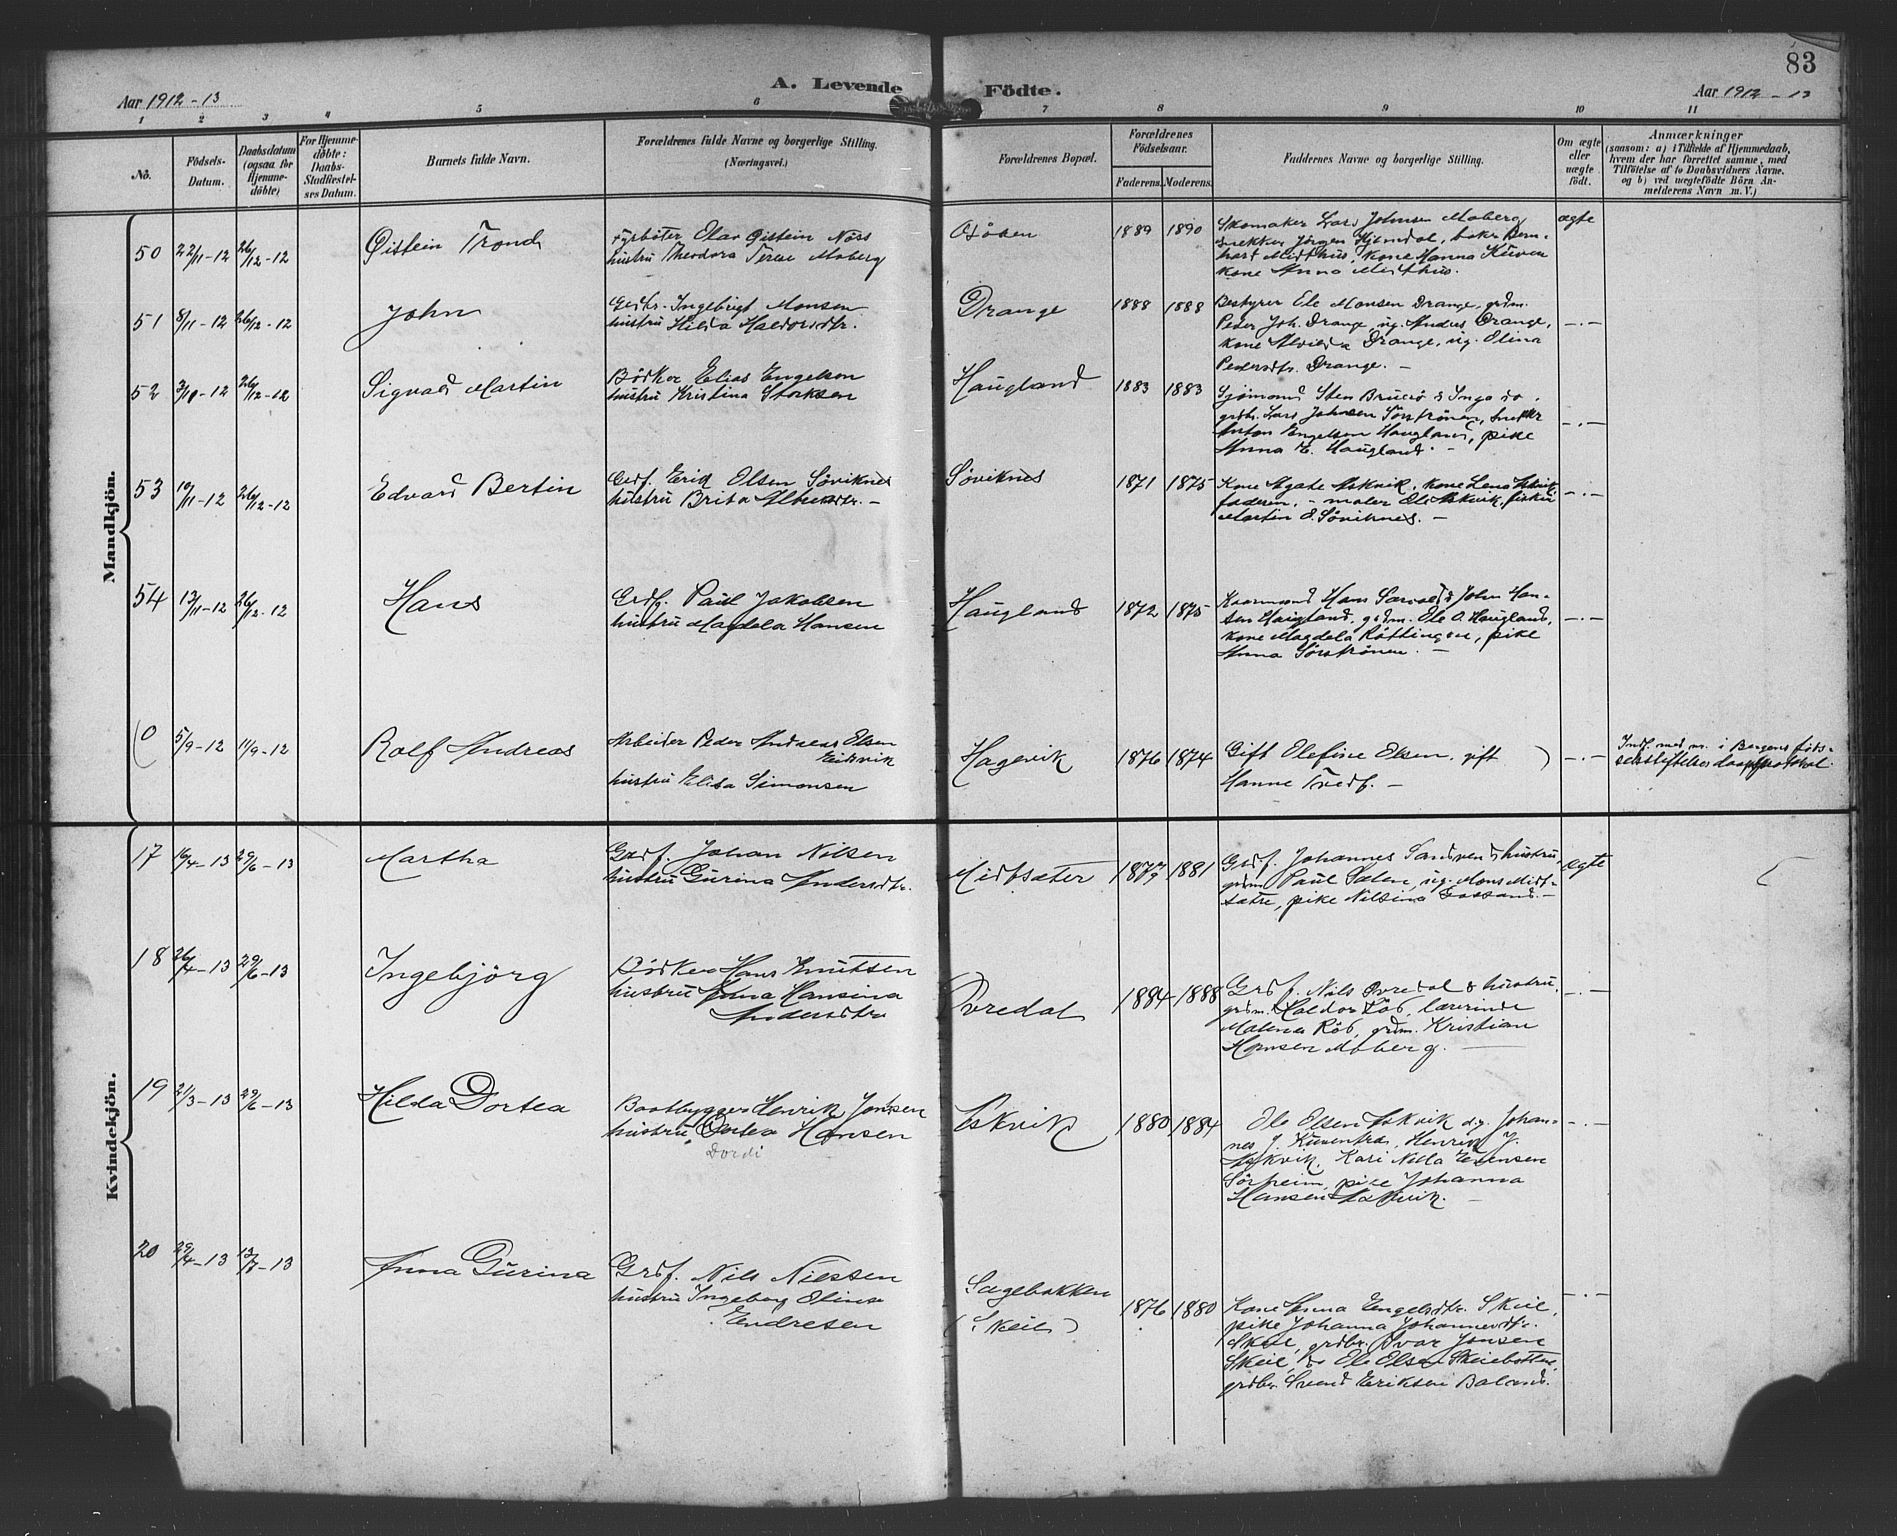 83
A. Levende Födte.
Aar 1912-13
Aar 1912-13
1 2 3 4 5 6 7 8 9 10 11
No.
Födsels-Datum.
Daabsdatum (ogsaa for Hjemmedöbte)
For Hjemmedöbte: Daabs-Stadfæstelses Datum.
Barnets fulde Navn.
Forældrenes fulde Navne og borgerlige Stilling.
(Næringsvei.)
Forældrenes Bopæl.
Forældrenes Födselsaar.
Faderens. Moderens.
Faddernes Navne og borgerlige Stilling.
Om ægte eller uægte födt.
Anmærkninger
(saasom: a) i Tilfælde af Hjemmedaab,
hvem der har forrettet samme, med
Tilföielse af to Daabsvidners Navne.
og b) ved uægtefödte Börn An-
melderens Navn m. V.)
Mandkjön.
50 22/11-12 26/12-12 Öistein Trond
Fyrböter Olav Öistein Näss
hustru Theodora Terese Moberg
Osören 1889 1890
Skomaker Lars Johnsen Moberg
snekker Jörgen Hjemdal, baker Bern-
hard Midthus, kone Hanna Kuven
kone Anna Midthus.
ægte
51 8/11-12 26/12-12 John
Grdbr. Ingebrigt Monsen
hustru Hilda Haldorsdtr.
Drange 1888 1888
Bestyrer Ole Monsen Drange, grdm.
Peder Joh. Drange, ug. Anders Drange,
kone Alvilda Drange, ug. Olina
Pedersdtr. Drange. -
-.-
52 3/10-12 26/12-12 Sigvald Martin
Bödker Elias Engelsen
hustru Kristina Storksen
Haugland 1883 1883
Sjömand Sten Bruarö & Inga do.
grdbr. Lars Johnsen Sörströnen, snekker
Anton Engelsen Haugland, pike
Anna E. Haugland. -
-.-
53 19/11-12 26/12-12 Edvard Bertin
Grdf. Erik Olsen Söviknes
hustru Brita Albertsdtr. -
Söviknes 1871 1875
Kone Agate Askvik, kone Lena Askvik
faderen, - maler Ole Askvik, fisker
Martin E. Söviknes. -
-.-
54 13/11-12 26/12-12 Hans
Grdf. Paul Jakobsen
hustru Magdela Hansen
Haugland 1872 1875
Hans & John Han-
sen Haugland, grdm. Ole O. Haugland,
kone Magdela Röttingen, pike
Anna Sörströnen. -
-.-
(0 5/9-12 11/9-12 Rolf Andreas
Arbeider Peder Andreas Olsen
Eidsvik
hustru Elisa Simonsen
Hagevik 1876 1874
Gift Olefine Olsen, gift )
Hanne Tvedt. -
-.-
Indf. med nr. i Bergens föd-
selsstiftelses daapsprotokol.
Kvindekjön.
17 16/4-13 29/6-13 Martha
Grdf. Johan Nilsen
hustru Gurina Andersdtr.
Midtsæter 1877 1881
Grdf. Johannes Sandven & hustru,
grdm. Paul Salen, ug. Mons Midt-
sætre, pike Nilsina Gaassand. -
ægte
18 26/4-13 29/6-13 Ingebjörg
Bödker Hans Knutsen
hustru Anna Hansina
Andersdtr.
Øvredal 1884 1888
Grdf. Nils Øvredal & hustru,
grdm. Haldor Röd, lærerinde
Malena Röd, grdm. Kristian
Hansen Moberg. -
-.-
19 21/3-13 29/6-13 Hilda Dortea
Baatbygger Henrik Jonsen
hustru Dortea Hansen
Dordi
Askvik 1880 1884
Ole Olsen Askvik d.y. Johan-
nes J. Kuventræ, Henrik J.
Askvik, Kari Nilla Evensen
Sörheim, pike Johanna
Hansen Askvik. -
-.-
20 29/4-13 13/7-13 Anna Gurina
Grdf. Nils Nilssen
hustru Ingeborg Olina
Endresen
Sagebakken
(Skeie) 1876 1880
Kone Anna Engelsdtr. Skeie,
pike Johanna Johannesdtr.
Skeie, grdbr. Ivar Jonsen
Skeie, do Ole Olsen Skeiebotten,
grdbr. Svend Eriksen Baland.
-.-